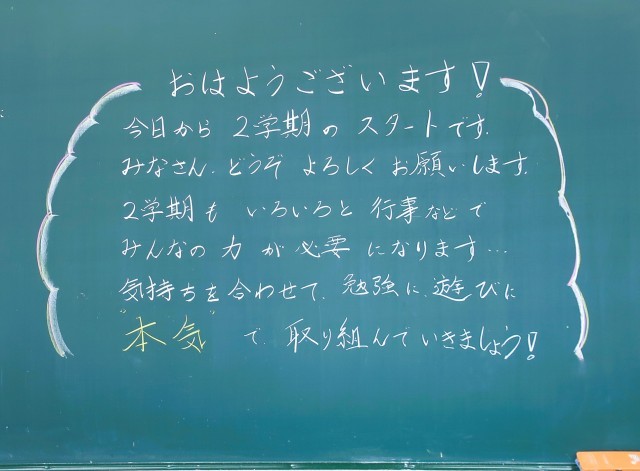 おはようございます!
今日から 2学期の スタートです.
みなさん. どうぞ よろしく お願いします.
2学期も いろいろと 行事などで
みんなの 力 が 必要 になります…
気持ちを合わせて、勉強に、遊びに
"本気" で 取り組んでいきましょう!